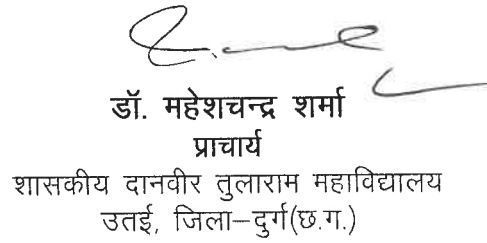 डॉ. महेशचन्द्र शर्मा
प्राचार्य
शासकीय दानवीर तुलाराम महाविद्यालय
उतई, जिला–दुर्ग(छ.ग.)